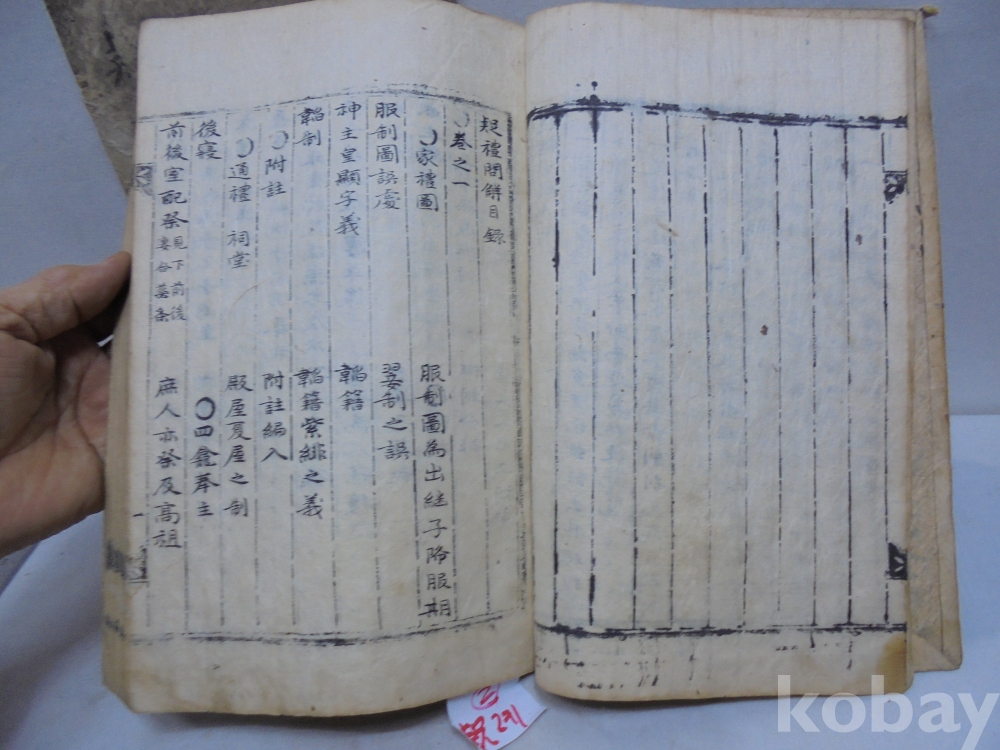 疑禮問觧目錄
〇卷之一
〇家禮圖 服制圖為出継子降服期
服制圖誤處 翣制之誤
神主皇顯字義 韜籍
韜制 韜籍紫緋之義
〇附註 附註編入
〇通禮 祠堂 殿屋夏屋之制
後寢 〇四龕奉主
前後室配祭 見下前後妻合葬条 庶人亦祭及高祖
一
kobay